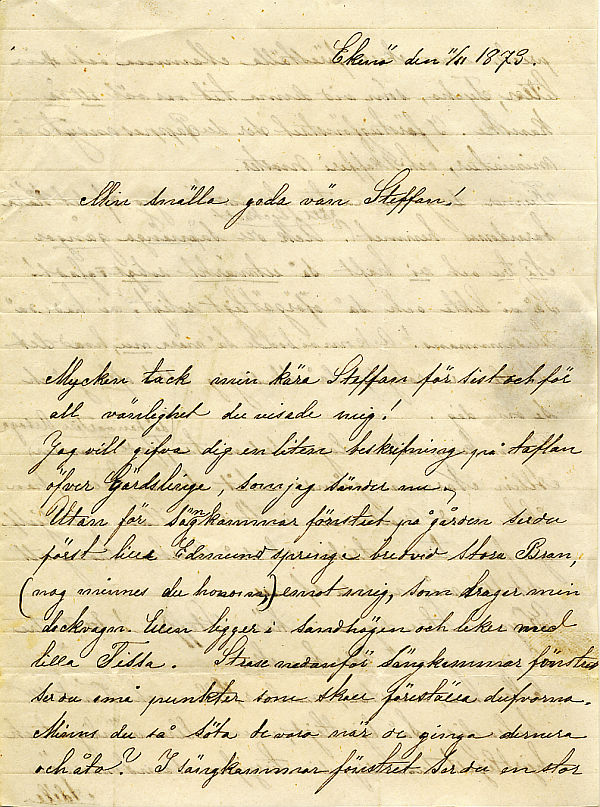 Ekenö den 11/11 1873.
Min snälla goda vän Steffan!
Mycken tack min kära Steffan för sist och för
all vänlighet du visade mig!
Jag vill gifva dig en liten beskrifning på taflan
öfver Gärdsberige, som jag sänder nu.
Utan för sängkammar fönstret på gården ser du
först lilla Edmund springa bredvid stora Bran,
(nog minnes du honom,) emot mig, som drager min
dockvagn. Ellen ligger i sandhögen och leker med
lilla Tissa. Strax nedanför sängkammar fönstret
ser du små punkter som skall föreställa dufvorna.
Minns du så söta de vara när de gingo dernera
och åto? I sängkammar fönstret ser du en stor